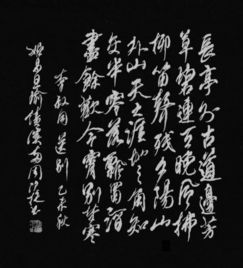 長亭外古道邊芳
草碧連天晚風拂
柳笛聲殘夕陽山
外山天之涯地之角知
交半零落濁酒
盡餘歡今宵別夢寒
李叔同 送別 乙未秋